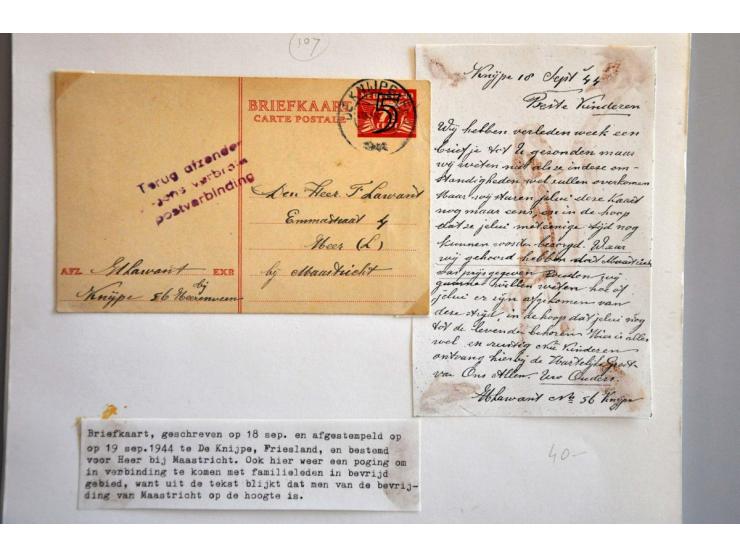 107
BRIEFKAART
CARTE POSTALE
DE KNIJPE
5
Terug afzender
wegens verbroken
postverbinding
Den Heer F Lawant
Emmastraat 4
Heer (L)
bij Maastricht
AFZ. Lawant EXR
bij
Knijpe 56 Heerenveen
Knijpe 18 Sept '44
Beste Kinderen
Wij hebben verleden week een
briefje tot U gezonden maar
wij weten niet of ze in deze om-
standigheden wel zullen overkomen
Maar wij sturen jelui deze kaart
nog maar eens, en in de hoop
dat ze jelui met eenige tijd nog
kunnen worden bezorgd. Waar
wij gehoord hebben dat Maastricht
prijsgegeven zouden wij
gaarne willen weten hoe of
jelui er zijn afgekomen van
deze strijd, in de hoop dat jelui nog
tot de levenden behoren. Hier is alles
wel en rustig Nu Kinderen
ontvang hierbij de Hartelijke Groet
van Ons Allen. Uw Ouders.
Lawant No 56 Knijpe
Briefkaart, geschreven op 18 sep. en afgestempeld op
op 19 sep.1944 te De Knijpe, Friesland, en bestemd
voor Heer bij Maastricht. Ook hier weer een poging om
in verbinding te komen met familieleden in bevrijd
gebied, want uit de tekst blijkt dat men van de bevrij-
ding van Maastricht op de hoogte is.
40-